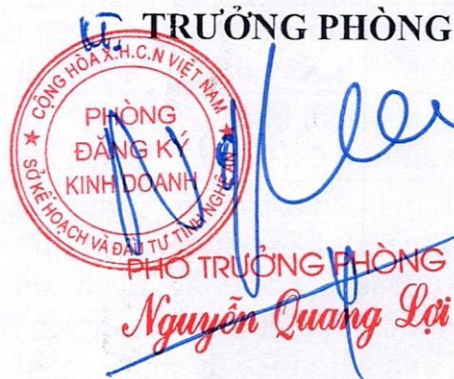 KT. TRƯỞNG PHÒNG
CỘNG HÒA X.H.C.N VIỆT NAM
PHÒNG
ĐĂNG KÝ
KINH DOANH
SỞ KẾ HOẠCH VÀ ĐẦU TƯ TỈNH NGHỆ AN
PHÓ TRƯỞNG PHÒNG
Nguyễn Quang Lợi